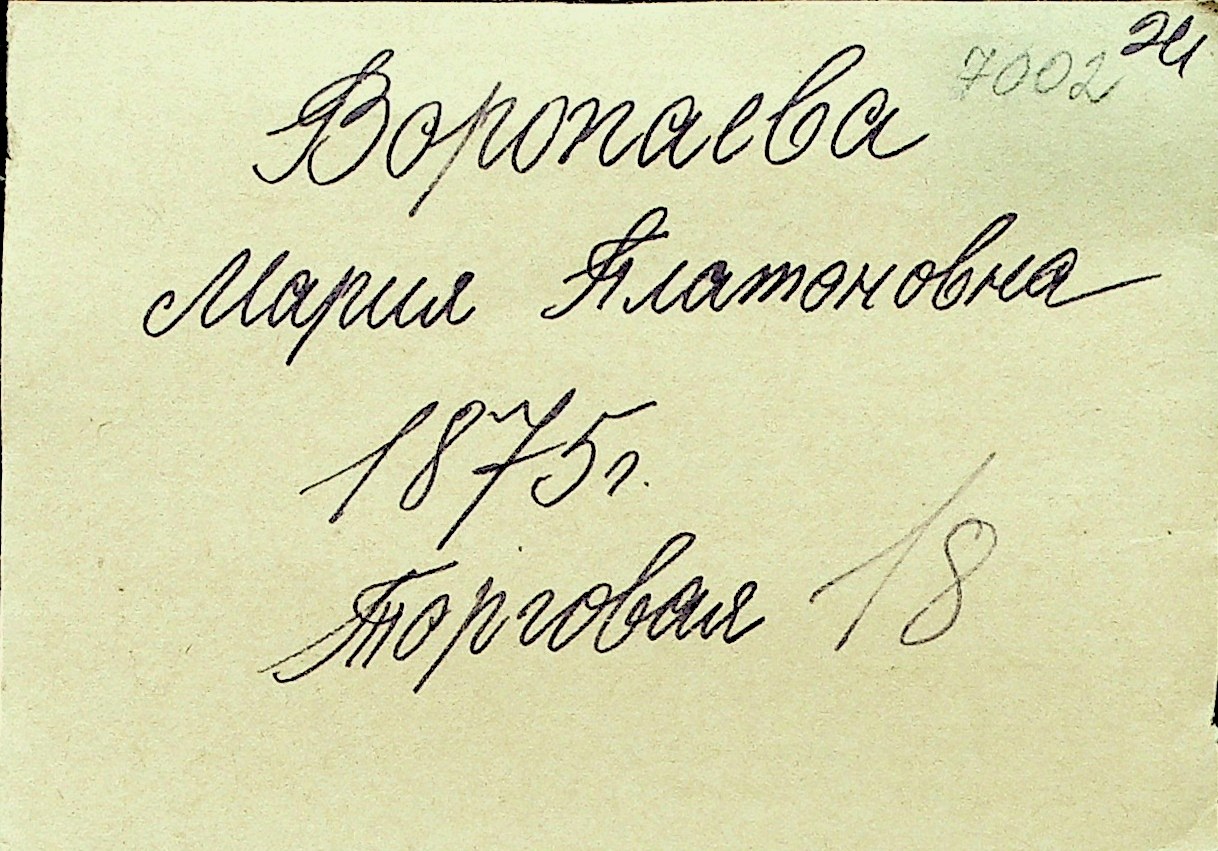 7002
Воропаева
Мария Платоновна
1875г.
Торговая 18